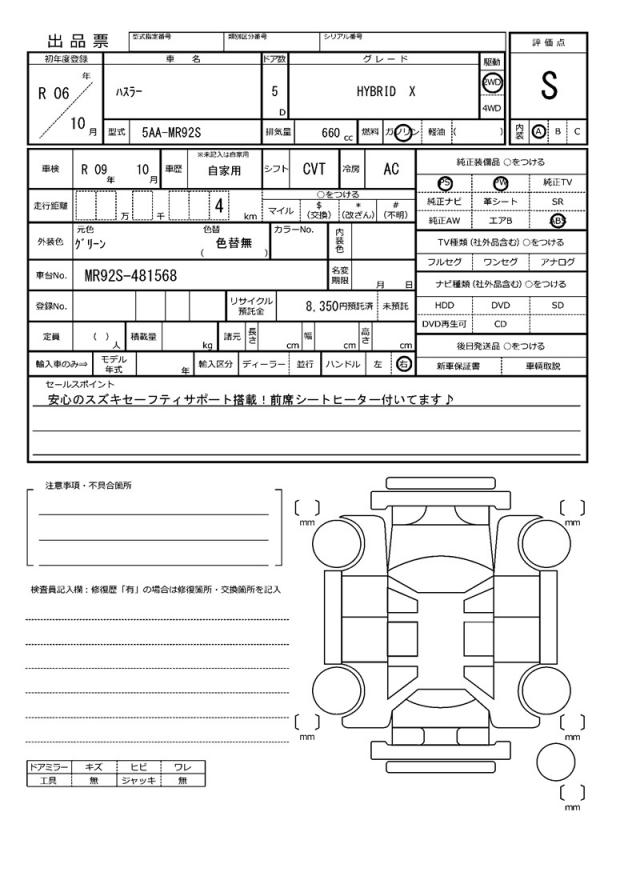 出品票
型式指定番号 類別区分番号 シリアル番号
評価点
初年度登録 車名 ドア数 グレード 駆動
R 06 年 10 月
ハスラー 5 D HYBRID X 2WD 4WD
S
型式 5AA-MR92S 排気量 660 cc 燃料 ガソリン 軽油 ( )
内装 A B C
車検 R 09 年 10 月 車歴 ※未記入は自家用 自家用 シフト CVT 冷房 AC
純正装備品 ○をつける
PS PW 純正TV
純正ナビ 革シート SR
純正AW エアB ABS
走行距離 万 千 4 km
○をつける
マイル $(交換) *(改ざん) #(不明)
外装色 元色 グリーン 色替 色替無 ( ) カラーNo. 内装色
TV種類(社外品含む)○をつける
フルセグ ワンセグ アナログ
車台No. MR92S-481568 名変期限 月 日
ナビ種類(社外品含む)○をつける
HDD DVD SD
DVD再生可 CD
登録No. リサイクル預託金 8,350円預託済 未預託
定員 ( ) 人 積載量 kg 諸元 長さ cm 幅 cm 高さ cm
後日発送品 ○をつける
新車保証書 車輌取説
輸入車のみ⇒ モデル年式 年 輸入区分 ディーラー 並行 ハンドル 左 右
セールスポイント
安心のスズキセーフティサポート搭載！前席シートヒーター付いてます♪
注意事項・不具合箇所
検査員記入欄：修復歴「有」の場合は修復箇所・交換箇所を記入
mm
mm
mm
mm
mm
ドアミラー キズ ヒビ ワレ
工具 無 ジャッキ 無